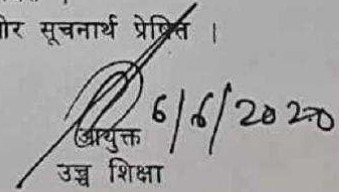 ोर सूचनार्थ प्रेषित ।
6/6/2020
आयुक्त
उच्च शिक्षा